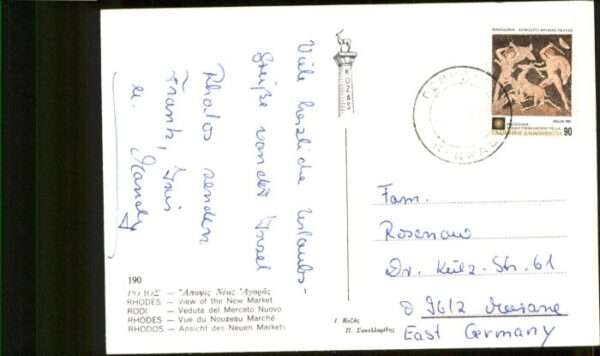 Viele herzliche Urlaubs-
Grüße von der Insel
Rhodos senden
Frank, Iris
u. Mandy
190
ΡΟΔΟΣ — Ἄποψις Νέας Ἀγορᾶς
RHODES — View of the New Market
RODI — Veduta del Mercato Nuovo
RHODES — Vue du Nouzeau Marché
RHODOS — Ansicht des Neuen Markets
ΡΟΔΟΣ
90
Fam.
Rosenau
Dr. Külz-Str. 61
D 9612 Meerane
East Germany